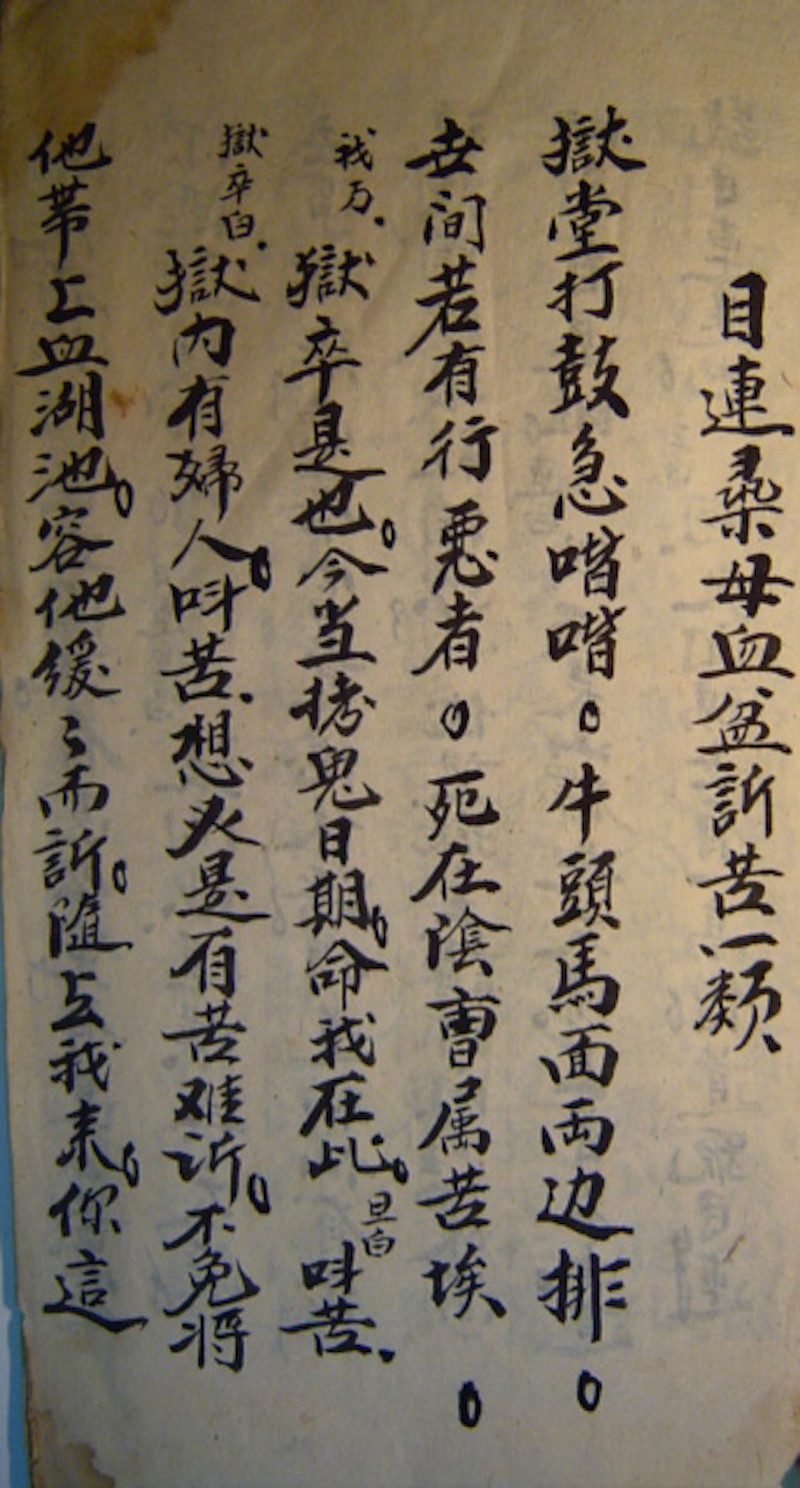 目連桑母血盆訴苦一類
獄堂打鼓急喈喈。牛頭馬面両边排。
世间若有行惡者。死在陰曹属苦埃。
我万.獄卒是也。今当拷鬼日期。命我在此。旦白 呌苦.
獄卒白.獄内有婦人。呌苦.想必是有苦难訴。不免将
他帯上血湖池。容他缓〻而訴。隨上我来。你這